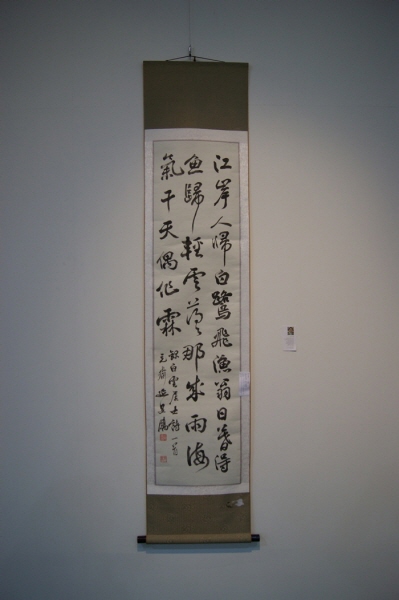 江岸人歸白鷺飛漁翁日暮得
魚歸輕雲薄々那成雨海
氣干天偶作霖
錄白雲居士詩一首
元齋